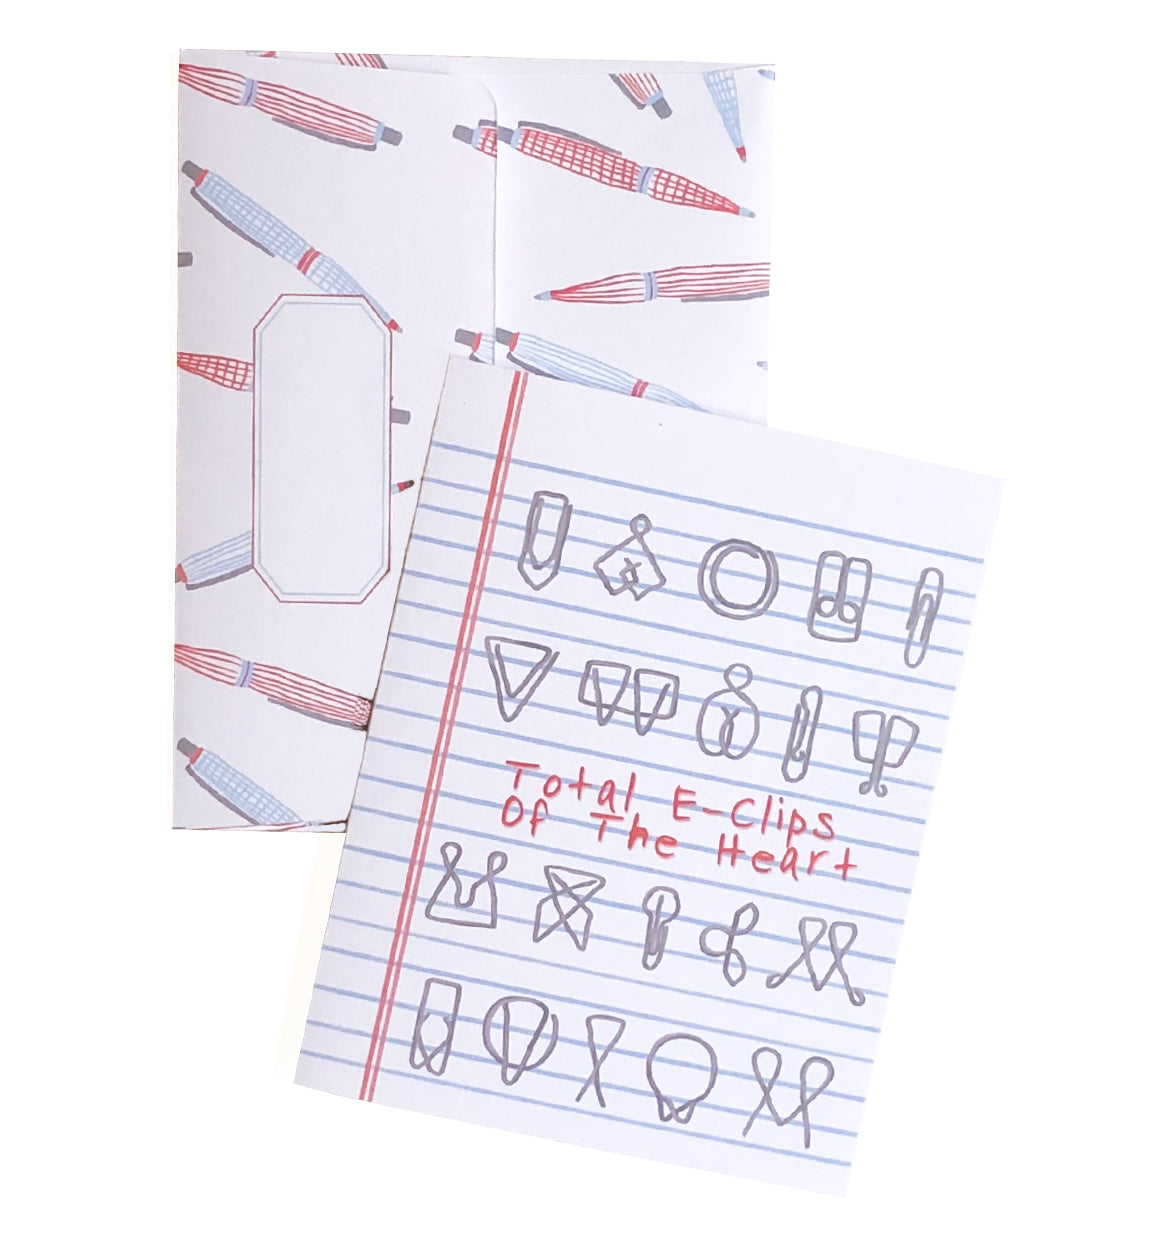 Total E-Clips
Of The Heart